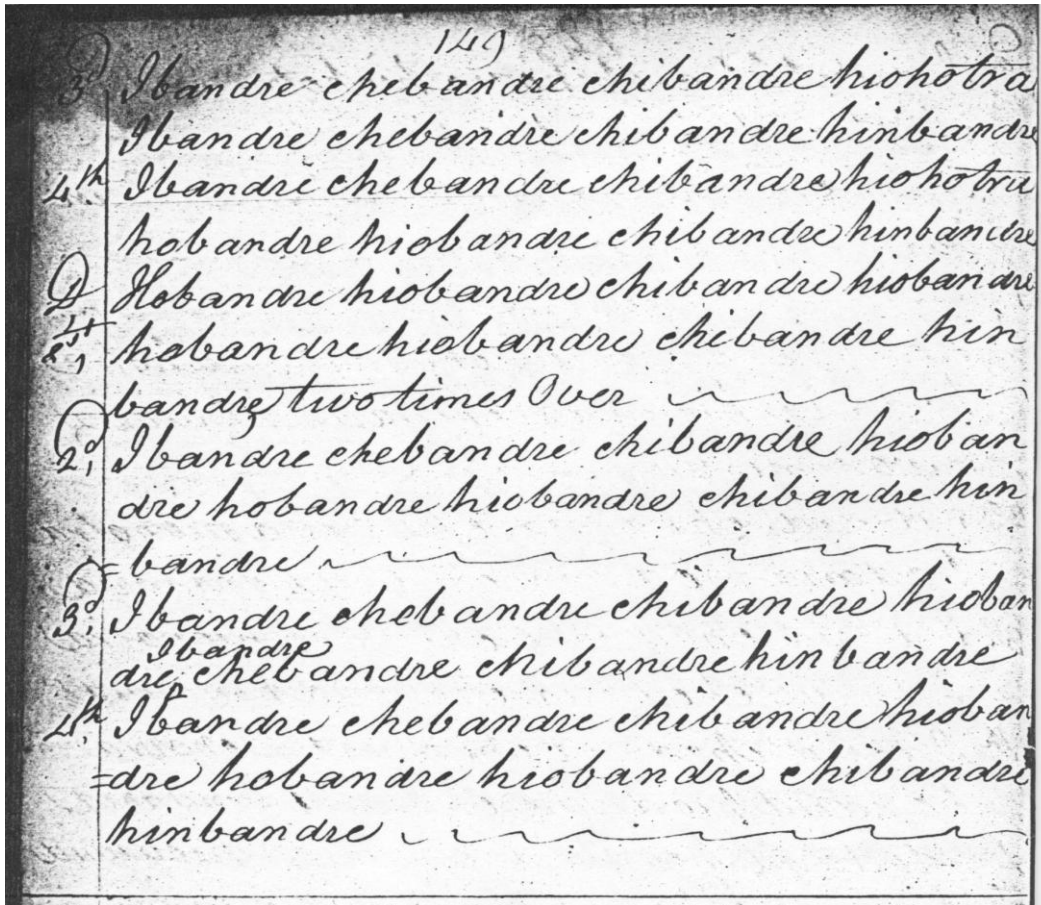 149
3d Ibandre chebandre chibandre hiohotra
Ibandre chebandre chibandre hinbandre
4th Ibandre chebandre chibandre hiohotra
hobandre hiobandre chibandre hinbandre
D Hobandre hiobandre chibandre hiobandre
1st hobandre hiobandre chibandre hin
bandre, two times Over
2d, Ibandre chebandre chibandre hioban
dre hobandre hiobandre chibandre hin
=bandre
3d, Ibandre chebandre chibandre hioban
Ibandre
dre chebandre chibandre hinbandre
4th Ibandre chebandre chibandre hioban
=dre hobandre hiobandre chibandre
hinbandre